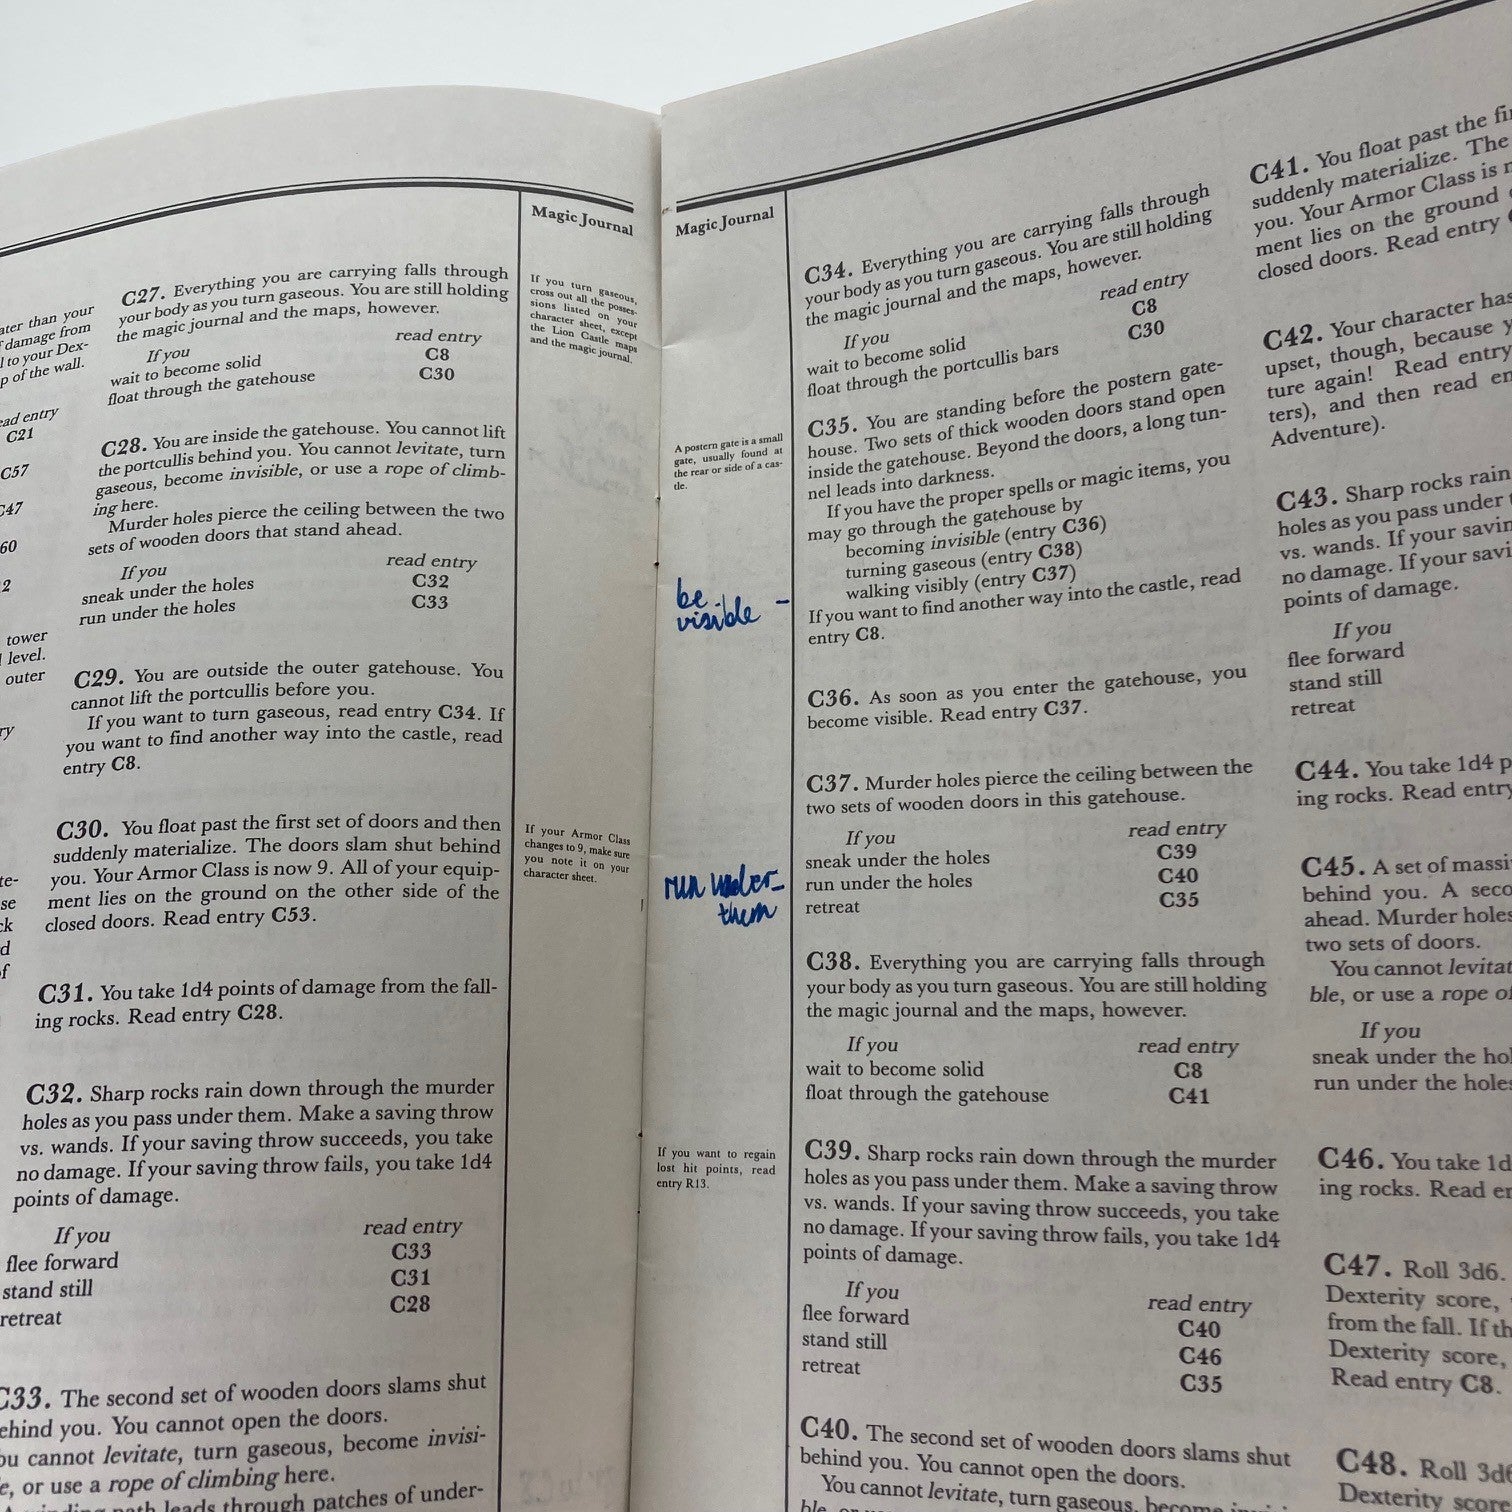 ater than your
damage from
l to your Dex-
p of the wall.
ead entry
C21
C57
C47
60
2
tower
level.
outer
C27. Everything you are carrying falls through
your body as you turn gaseous. You are still holding
the magic journal and the maps, however.
If you read entry
wait to become solid C8
float through the gatehouse C30
C28. You are inside the gatehouse. You cannot lift
the portcullis behind you. You cannot levitate, turn
gaseous, become invisible, or use a rope of climb-
ing here.
Murder holes pierce the ceiling between the two
sets of wooden doors that stand ahead.
If you read entry
sneak under the holes C32
run under the holes C33
C29. You are outside the outer gatehouse. You
cannot lift the portcullis before you.
If you want to turn gaseous, read entry C34. If
you want to find another way into the castle, read
entry C8.
C30. You float past the first set of doors and then
suddenly materialize. The doors slam shut behind
you. Your Armor Class is now 9. All of your equip-
ment lies on the ground on the other side of the
closed doors. Read entry C53.
C31. You take 1d4 points of damage from the fall-
ing rocks. Read entry C28.
C32. Sharp rocks rain down through the murder
holes as you pass under them. Make a saving throw
vs. wands. If your saving throw succeeds, you take
no damage. If your saving throw fails, you take 1d4
points of damage.
If you read entry
flee forward C33
stand still C31
retreat C28
C33. The second set of wooden doors slams shut
ehind you. You cannot open the doors.
ou cannot levitate, turn gaseous, become invisi-
e, or use a rope of climbing here.
winding path leads through patches of under-
Magic Journal
If you turn gaseous,
cross out all the posses-
sions listed on your
character sheet, except
the Lion Castle maps
and the magic journal.
If your Armor Class
changes to 9, make sure
you note it on your
character sheet.
Magic Journal
A postern gate is a small
gate, usually found at
the rear or side of a cas-
tle.
be
visible -
run under
them
If you want to regain
lost hit points, read
entry R13.
C34. Everything you are carrying falls through
your body as you turn gaseous. You are still holding
the magic journal and the maps, however.
If you read entry
wait to become solid C8
float through the portcullis bars C30
C35. You are standing before the postern gate-
house. Two sets of thick wooden doors stand open
inside the gatehouse. Beyond the doors, a long tun-
nel leads into darkness.
If you have the proper spells or magic items, you
may go through the gatehouse by
becoming invisible (entry C36)
turning gaseous (entry C38)
walking visibly (entry C37)
If you want to find another way into the castle, read
entry C8.
C36. As soon as you enter the gatehouse, you
become visible. Read entry C37.
C37. Murder holes pierce the ceiling between the
two sets of wooden doors in this gatehouse.
If you read entry
sneak under the holes C39
run under the holes C40
retreat C35
C38. Everything you are carrying falls through
your body as you turn gaseous. You are still holding
the magic journal and the maps, however.
If you read entry
wait to become solid C8
float through the gatehouse C41
C39. Sharp rocks rain down through the murder
holes as you pass under them. Make a saving throw
vs. wands. If your saving throw succeeds, you take
no damage. If your saving throw fails, you take 1d4
points of damage.
If you read entry
flee forward C40
stand still C46
retreat C35
C40. The second set of wooden doors slams shut
behind you. You cannot open the doors.
You cannot levitate, turn gaseous, become invisi-
C41. You float past the fi
suddenly materialize. The
you. Your Armor Class is
ment lies on the ground
closed doors. Read entry
C42. Your character has
upset, though, because y
ture again! Read entry
ters), and then read en
Adventure).
C43. Sharp rocks rain
holes as you pass under
vs. wands. If your savin
no damage. If your savi
points of damage.
If you
flee forward
stand still
retreat
C44. You take 1d4 p
ing rocks. Read entry
C45. A set of massi
behind you. A seco
ahead. Murder holes
two sets of doors.
You cannot levitat
ble, or use a rope of
If you
sneak under the hol
run under the holes
C46. You take 1d
ing rocks. Read en
C47. Roll 3d6.
Dexterity score,
from the fall. If th
Dexterity score,
Read entry C8.
C48. Roll 3d6
Dexterity score